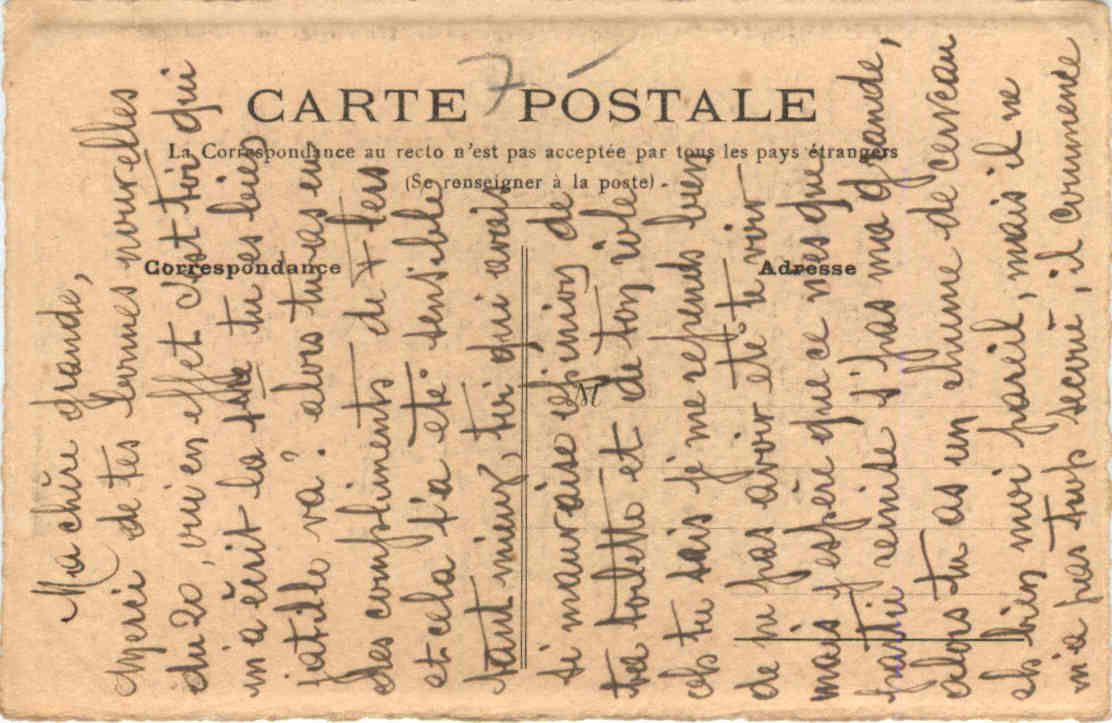 7
CARTE POSTALE
La Correspondance au recto n'est pas acceptée par tous les pays étrangers
(Se renseigner à la poste)
Correspondance
Adresse
M
Ma chère grande,
Merci de tes bonnes nouvelles
du 20, oui en effet c'est toi qui
m'a écrit la tu es bien
gentille va? alors tu as eu
des compliments de + tiers
et cela t'a été sensible
tant mieux, toi qui avais
si mauvaise opinion de
ta toilette et de ton rôle
oh tu sais je me repends bien
de n pas avoir été te voir
mais j'espère que ce n'es que
partie remise s'pas ma grande,
alors tu as un rhume de cerveau
eh bien moi pareil, mais il ne
m'a pas trop secoué, il commence